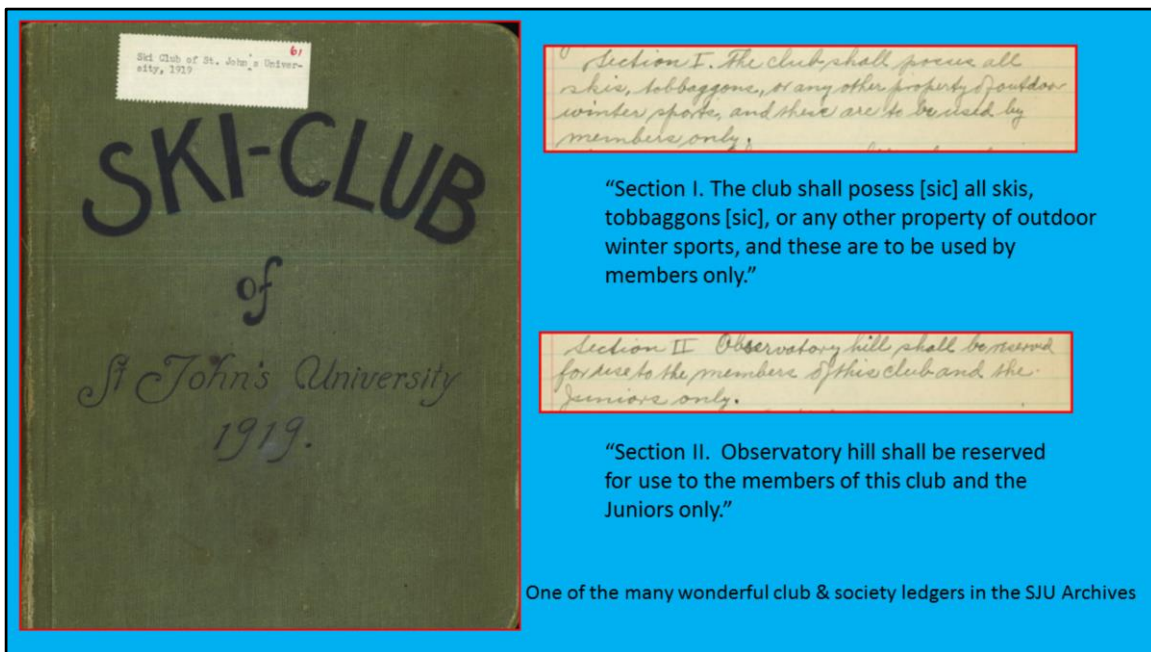 61
Ski Club of St. John's Univer-
sity, 1919
SKI-CLUB
of
St John's University
1919.
Section I. The club shall posess all
skis, tobbaggons, or any other property of outdoor
winter sports, and these are to be used by
members only.
“Section I. The club shall posess [sic] all skis,
tobbaggons [sic], or any other property of outdoor
winter sports, and these are to be used by
members only.”
Section II Observatory hill shall be reserved
for use to the members of this club and the
Juniors only.
“Section II.  Observatory hill shall be reserved
for use to the members of this club and the
Juniors only.”
One of the many wonderful club & society ledgers in the SJU Archives